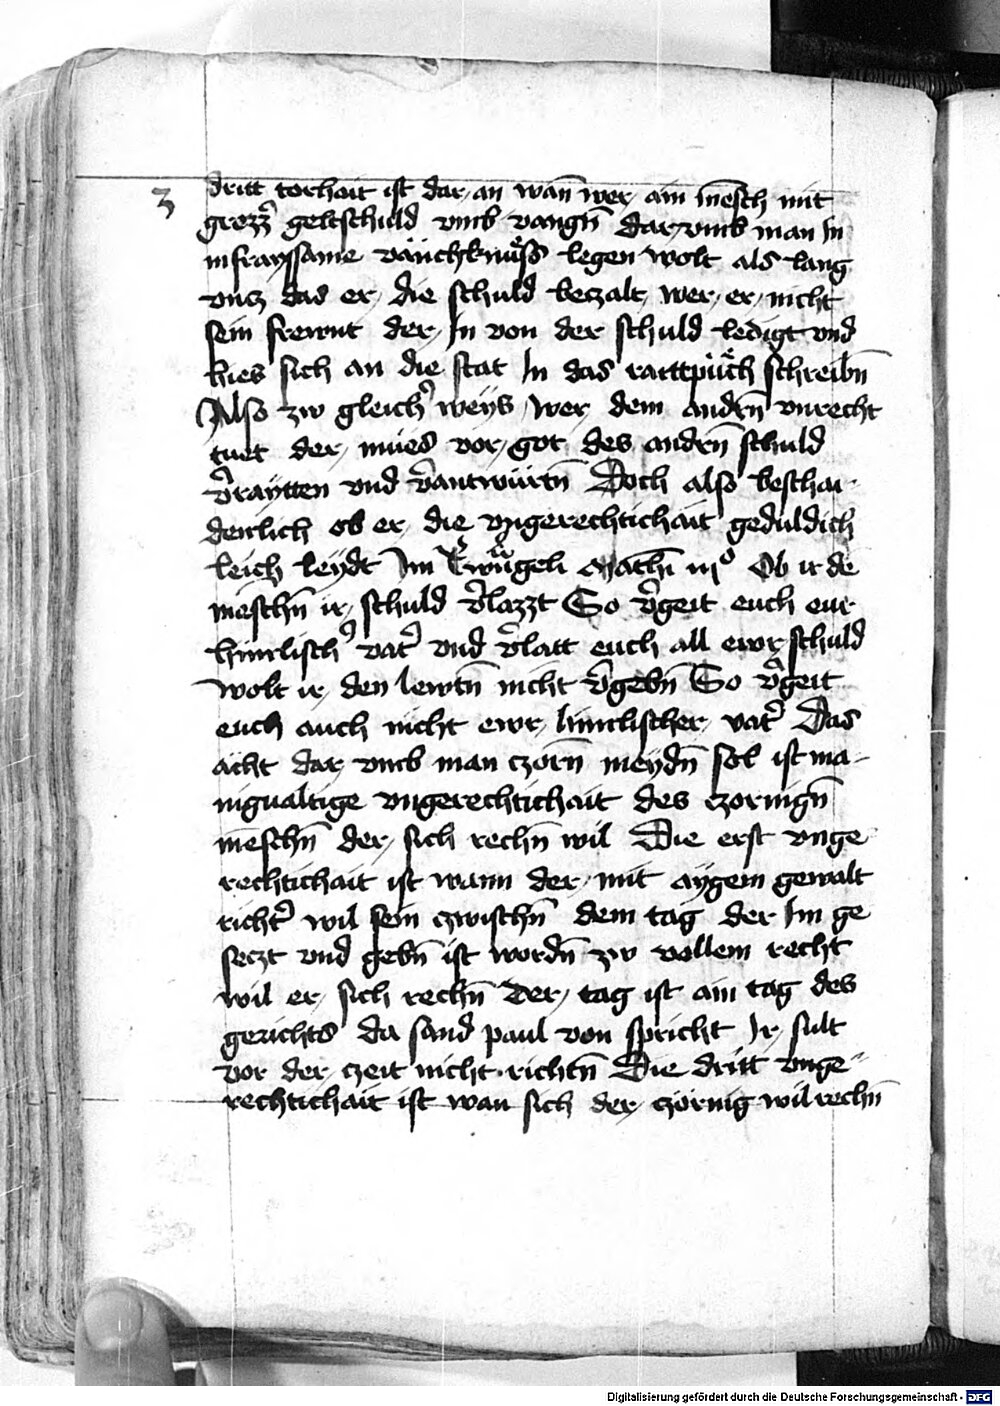 3
dritt torhait ist dar an wan̄ wer ain mēsch mit
grozz̄ geltschuld vmb vangn̄ dar vmb man In
in frayssame väncknüss legen wolt als lang
vncz das er die schuld beczalt wer er nicht
sein frewnt der In von der schuld ledigt vnd
hies sich an die stat In das rattpüch schreibn̄
Also zw gleich̄ weys wer dem andrn̄ vnrecht
tuet der mües vor got des andrn̄ schuld
v̄raytten vnd v̄antwürtn̄ Doch also beschai
denlich ob er die vngerechtichait geduldich
leich leydt Im Ewāgeli Mathei vjº Ob ir dē
mēschn̄ ir schuld v̄lazzt So v̄geit euch eur
himlisch̄ vat̄ vnd v̄latt euch all ewr schuld
wolt ir den lewtn̄ nicht v̄gebn̄ So v̄geit
euch auch nicht ewr himlischer vat̄ Das
ächt dar vmb man czorn̄ meydn̄ sol ist ma-
nigualtige vngerechtichait des czornign̄
mēschn̄ der sich rechn̄ wil Die erst vnge
rechtichait ist wann der mit aygem gewalt
richt̄ wil sein czwischn̄ dem tag der Im ge
seczt vnd gebn̄ ist wordn̄ zw vollem recht
wil er sich rechn̄ Der tag ist ain tag des
gerichts da sand paul von spricht Ir sult
vor der czeit nicht richtn̄ Die dritt vnge-
rechtichait ist wan sich der czornig wil rechn̄
Digitalisierung gefördert durch die Deutsche Forschungsgemeinschaft - DFG